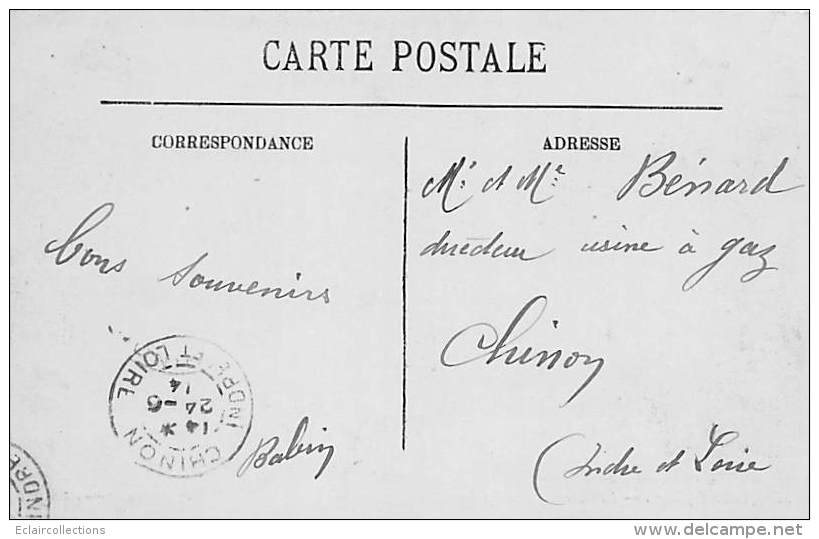 CARTE POSTALE
CORRESPONDANCE
Bons Souvenirs
Babin
ADRESSE
Mr et Me Bénard
directeur usine à gaz
Chinon
(Indre et Loire
CHINON
INDRE ET LOIRE
14 *
24 - 6
14
INDRE
Eclaircollections
delcampe.net